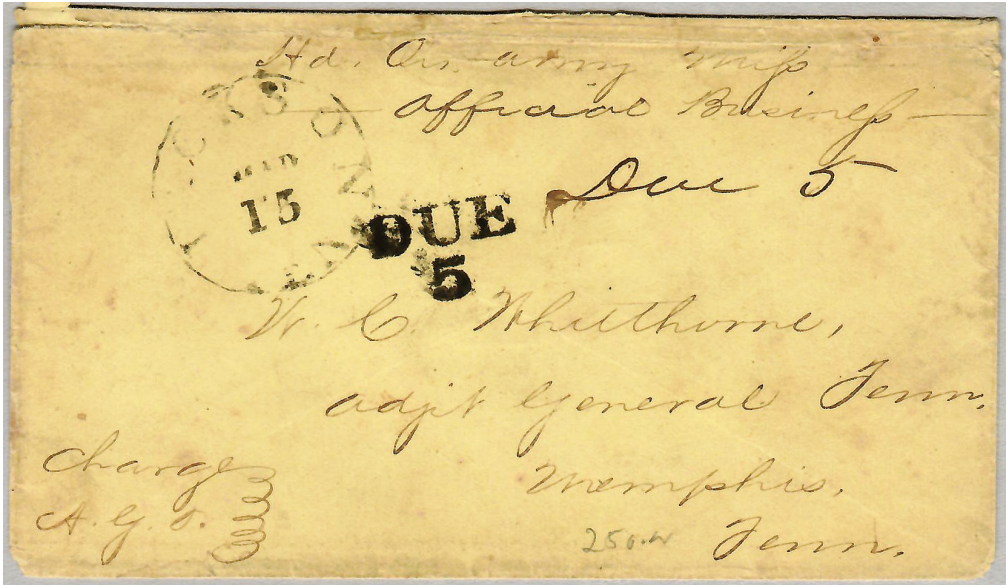 Hd. Qrs. army Miss
Official Business
JACKSON TEN.
MAR
15
Due 5
DUE
5
W. C. Whitthorne,
adjt General Tenn.
Memphis,
Tenn.
Charge
A. G. O.